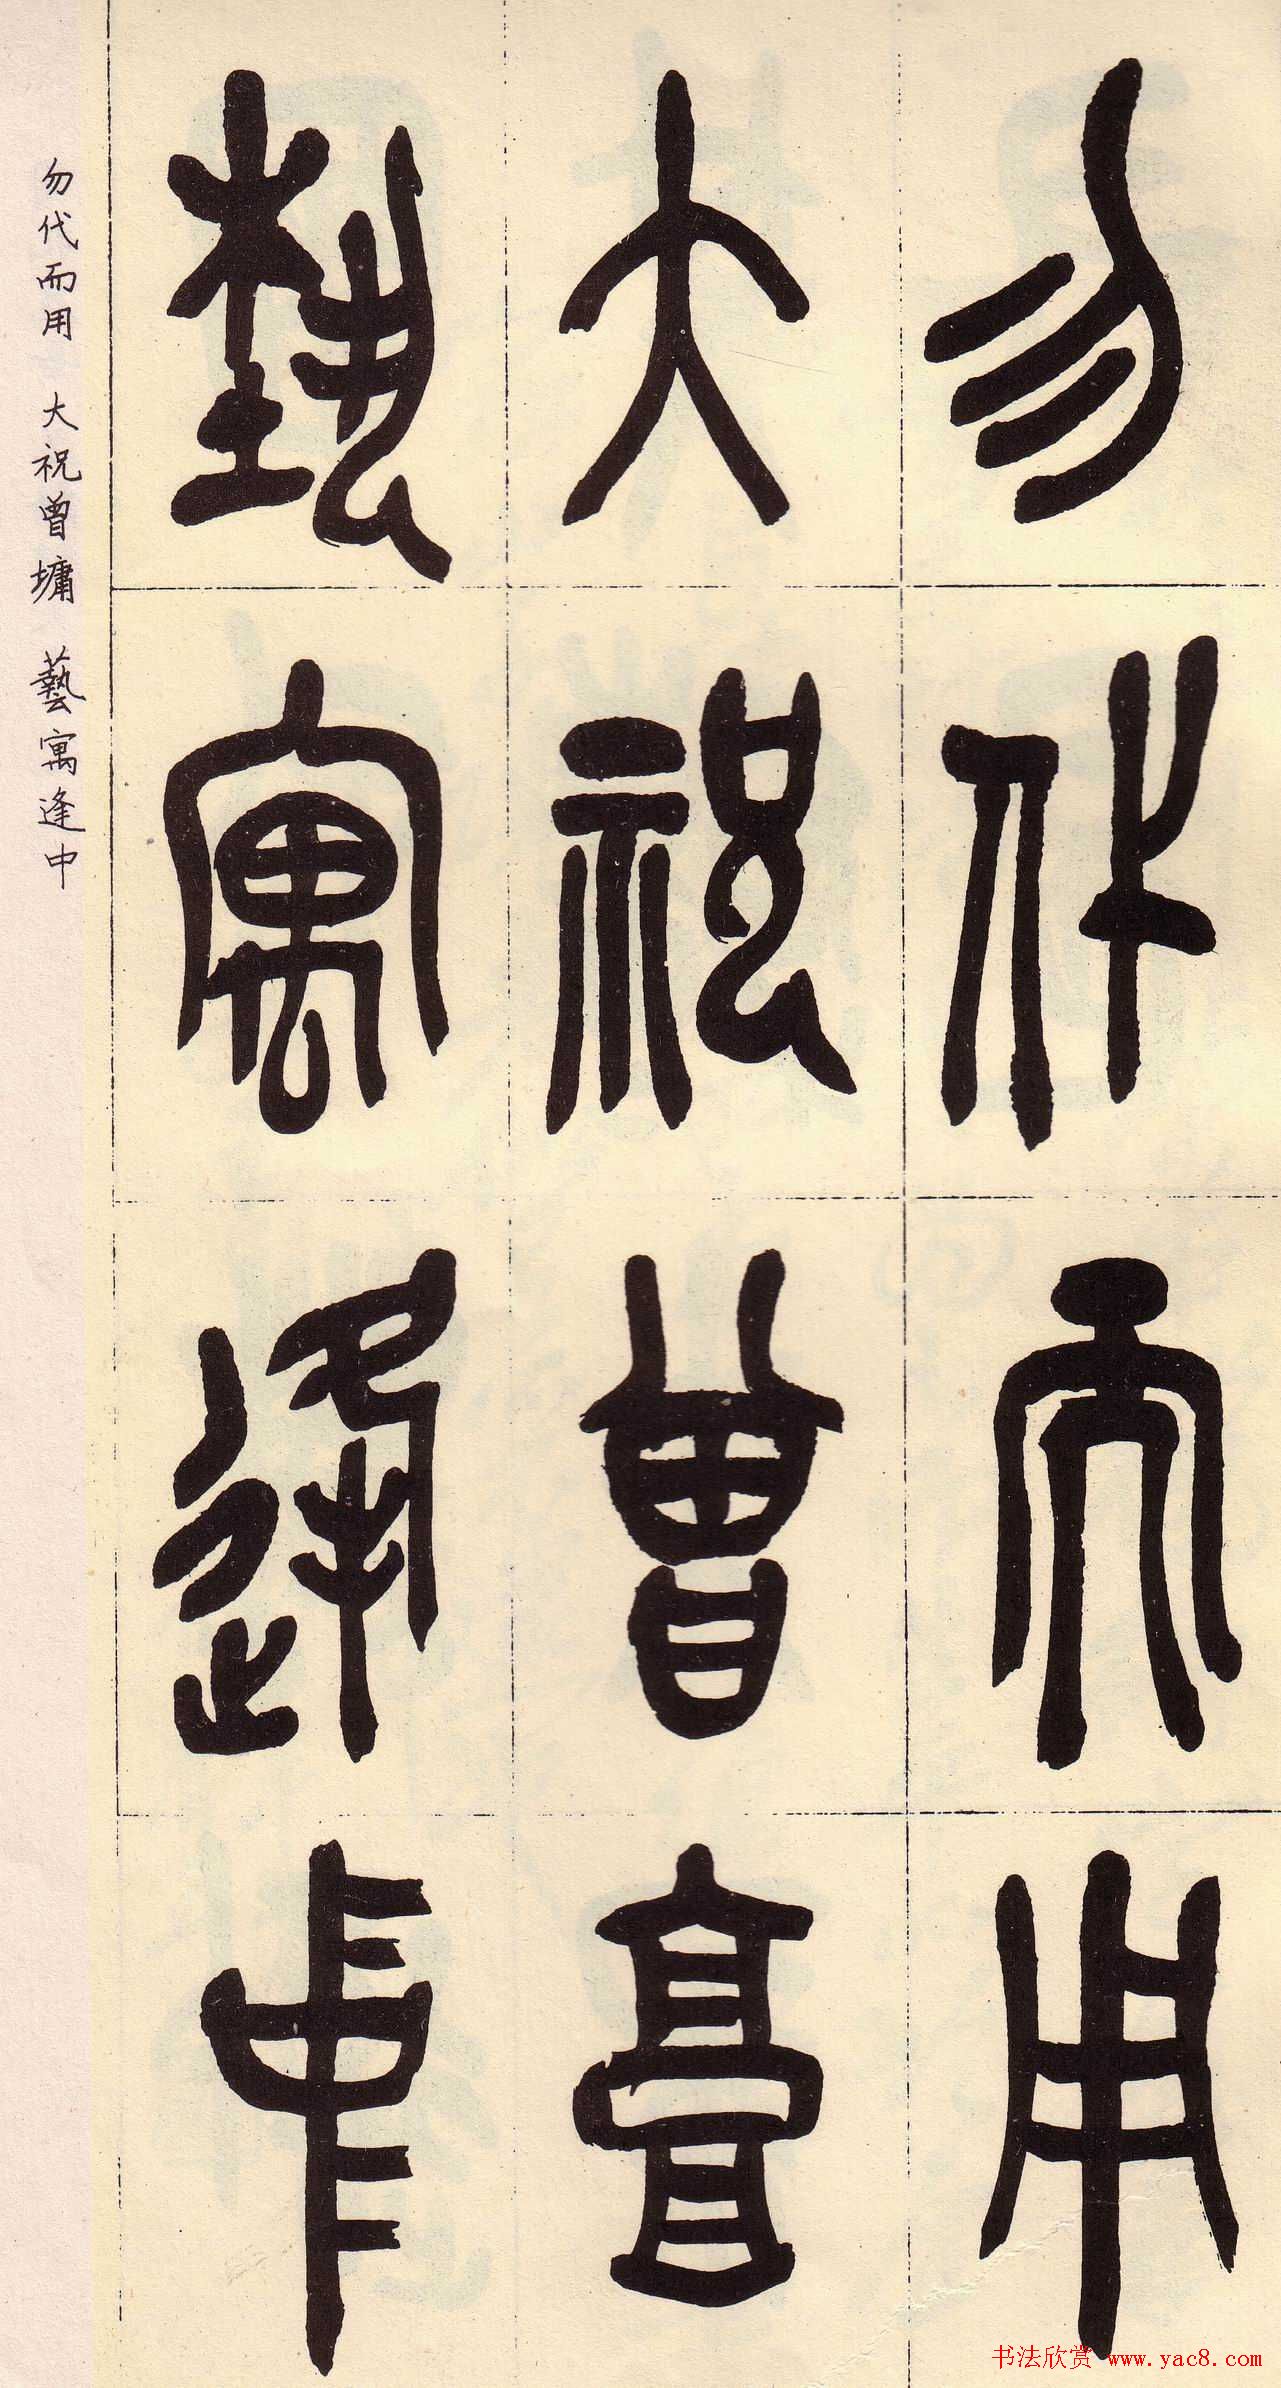 勿代而用
大祝曾墉
藝寓逢中
勿代而用 大祝曾墉 藝寓逢中
书法欣赏 www.yac8.com